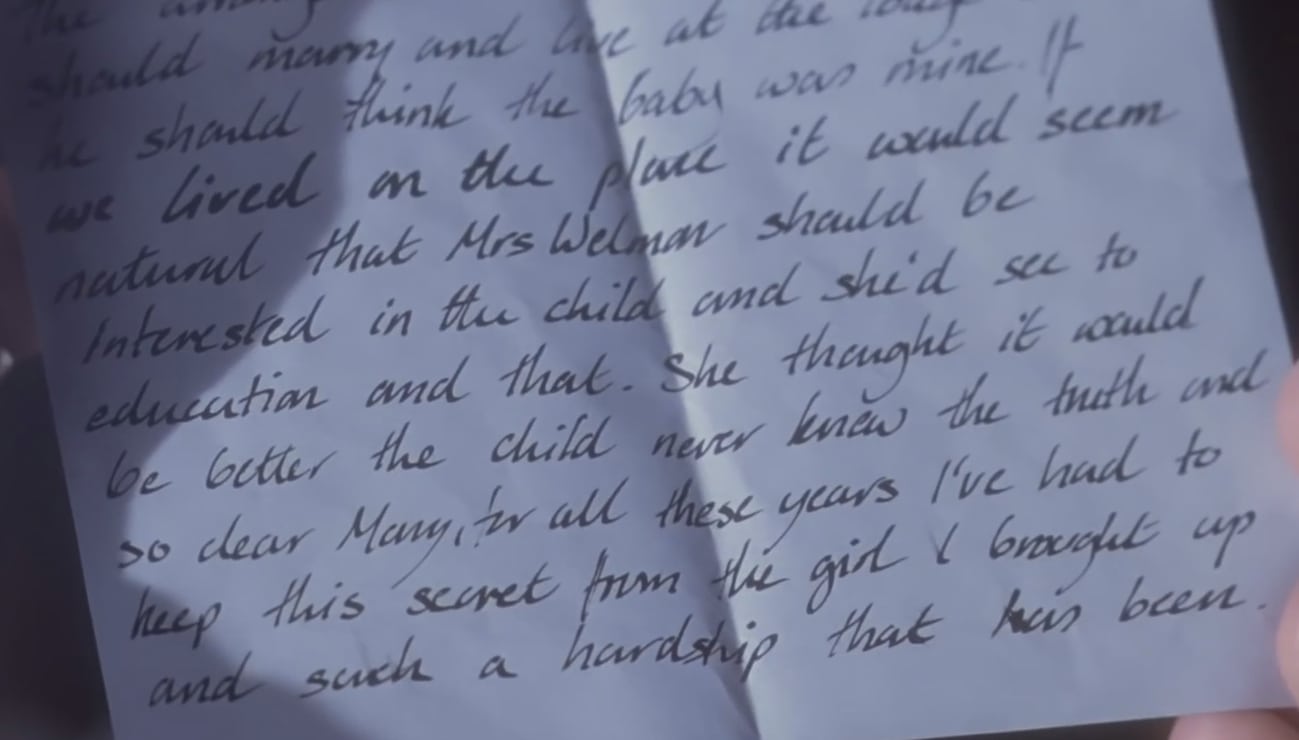 The
should marry and live at the
he should think the baby was mine. If
we lived on the place it would seem
natural that Mrs Welman should be
interested in the child and she'd see to
education and that. She thought it would
be better the child never knew the truth and
so dear Mary, for all these years I've had to
keep this secret from the girl I brought up
and such a hardship that has been.